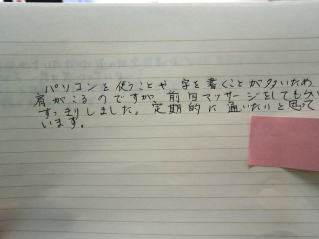 パソコンを使うことや 字を書くことが多いため
肩がこるのですが、前回マッサージをしてもらい
すっきりしました。定期的に通いたいと思って
います。